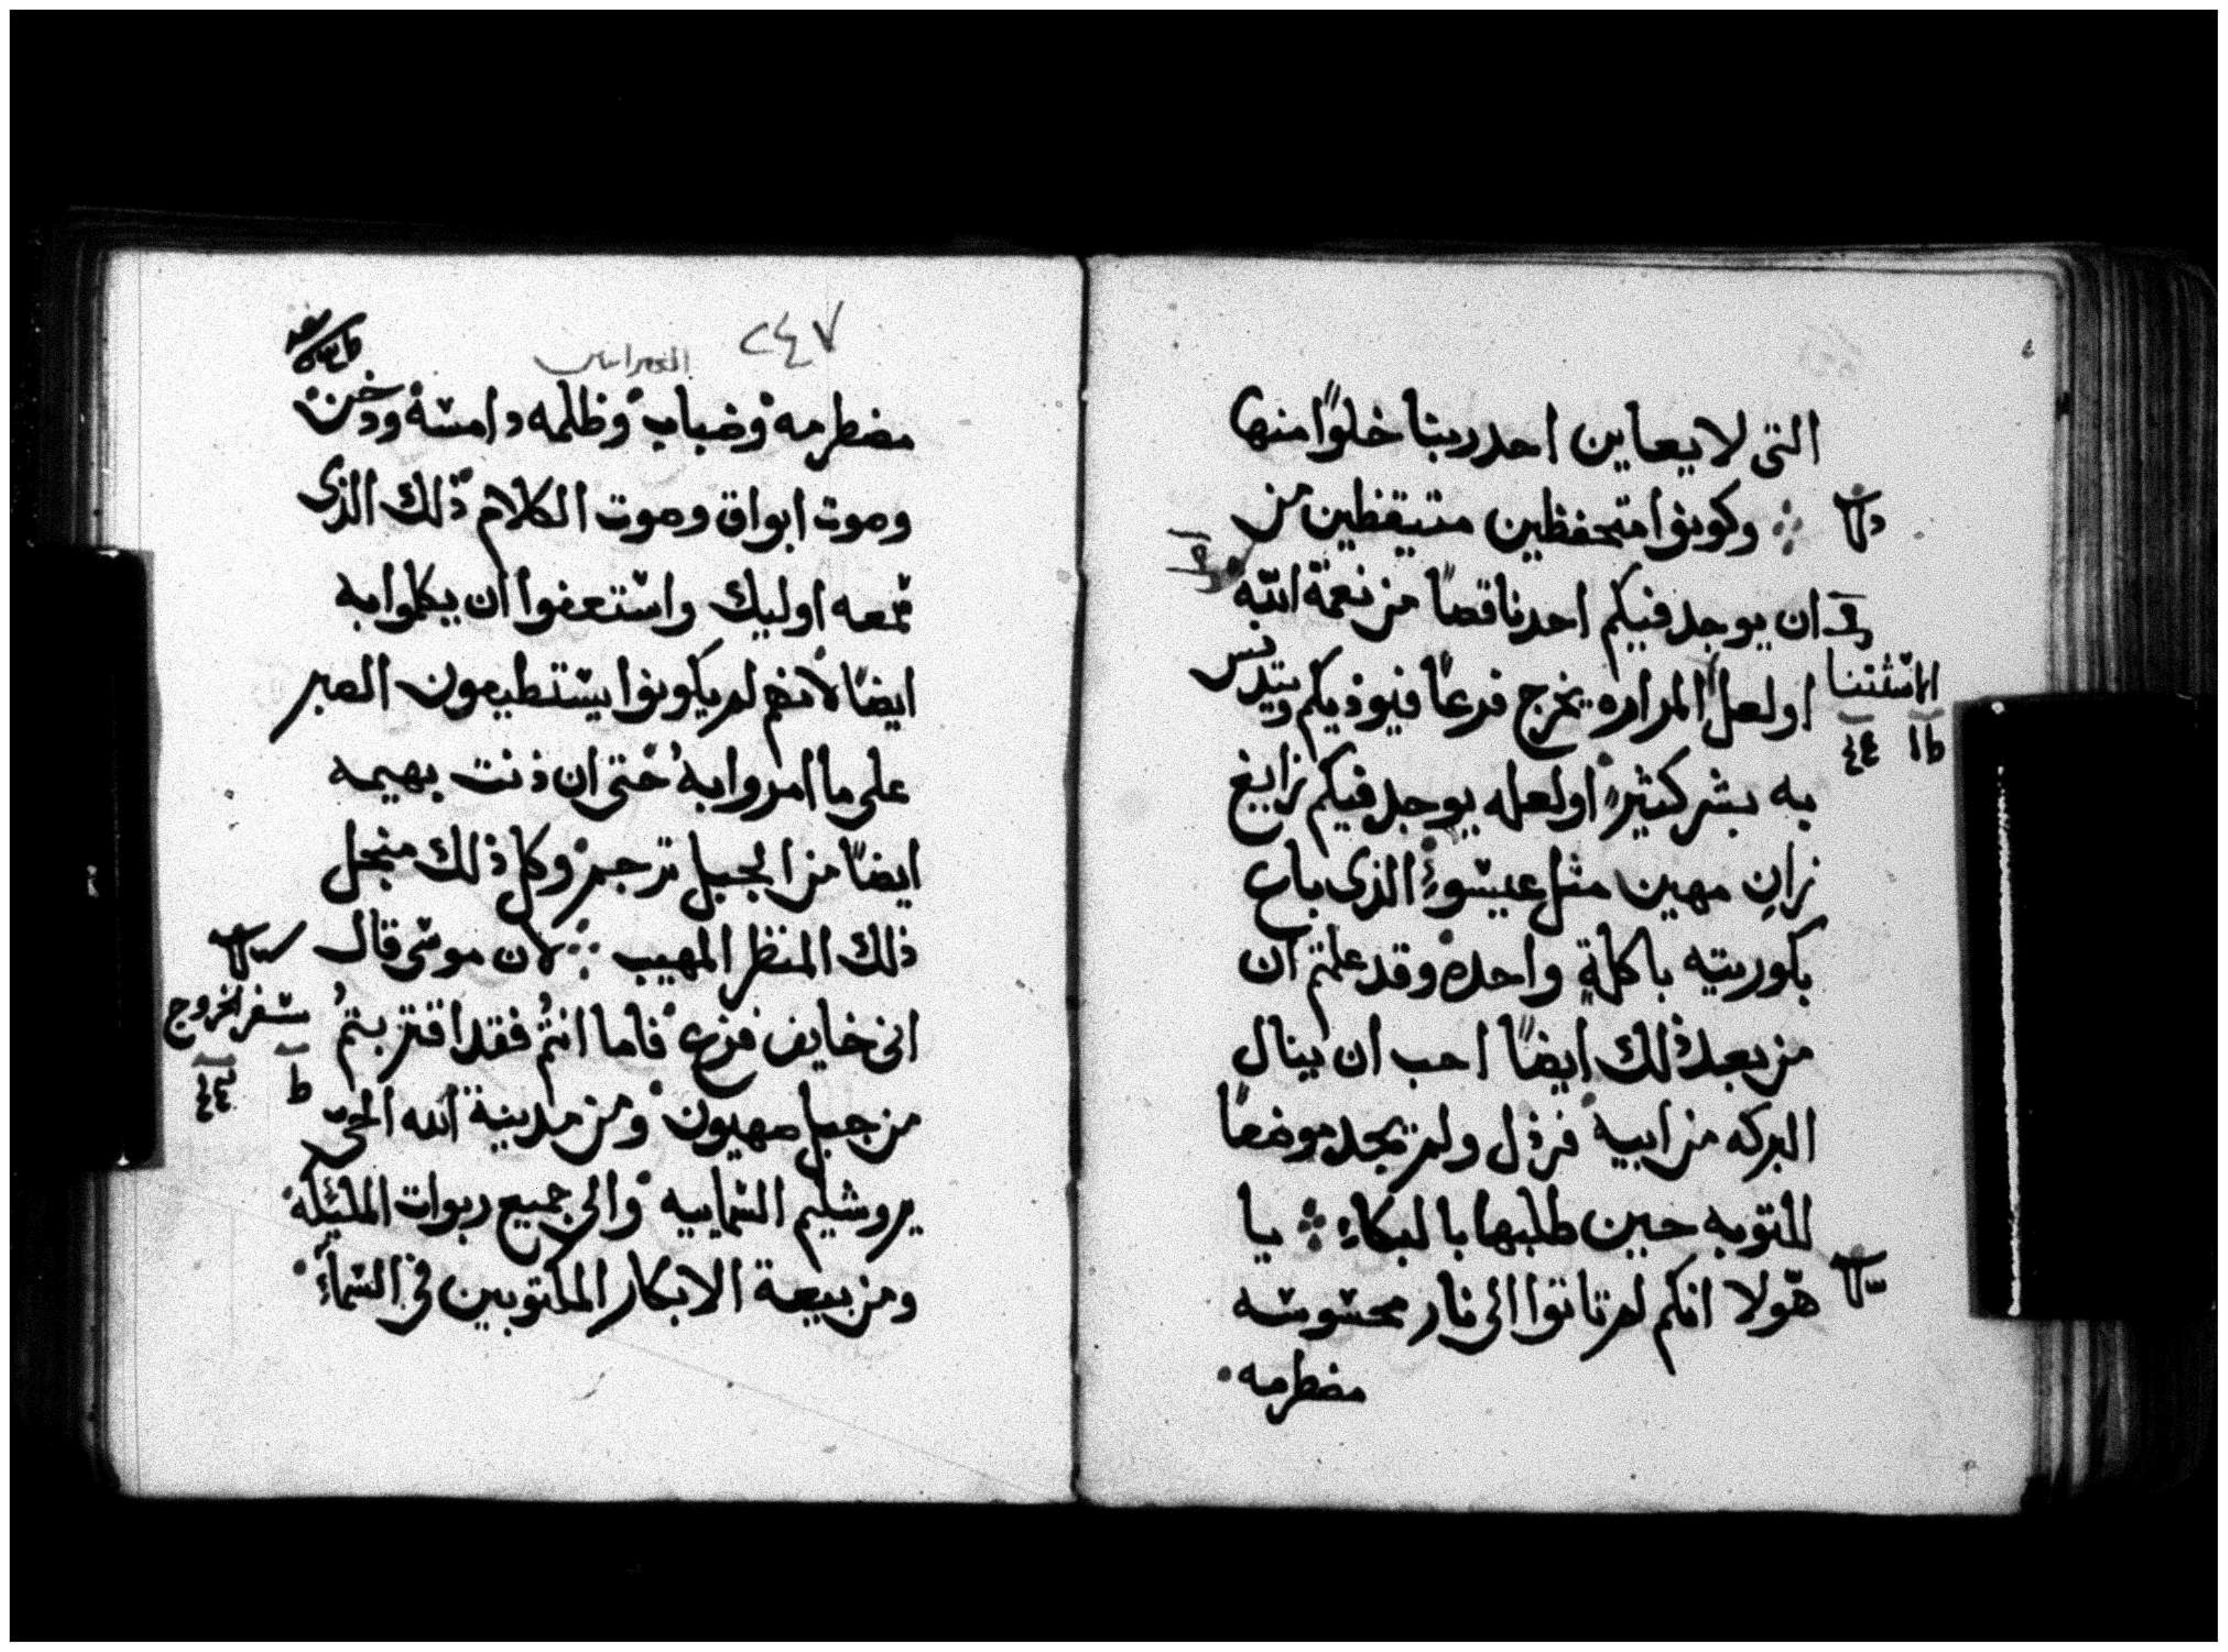 التى لا يعاين احد ربنا خلوًا منها
وكونوا متحفظين متيقظين من
ان يوجد فيكم احد ناقصًا من نعمة الله
او لعل المراره يخرج فرعًا فيوذيكم ويتدنس
به بشر كثير او لعله يوجد فيكم زايغ
زانٍ مهين مثل عيسوء الذى باع
بكوريته باكلةٍ واحده وقد علمتم ان
من بعد ذلك ايضًا احب ان ينال
البركه من ابيه فرذل ولم يجد موضعًا
للتوبه حين طلبها بالبكاء يا
هولا انكم لم تاتوا الى نار محسوسه
مضطرمه
المستثنا
٢٤٧
العبرانيين
مضطرمه وضباب وظلمه دامسه ودخن
وصوت ابواق وصوت الكلام ذلك الذى
سمعه اوليك واستعفوا ان يكلموا به
ايضًا لانهم لم يكونوا يستطيعون الصبر
على ما امروا به حتى ان دنت بهيمه
ايضًا من الجبل ترجم وكل ذلك منجل
ذلك المنظر المهيب لان موسى قال
انى خايف فزع فاما انتم فقد اقتربتم
من جبل صهيون ومن مدينة الله الحى
يروشليم السمايه والى جميع ربوات المليكه
ومن بيعة الابكار المكتوبين فى السماء
سفر الخروج